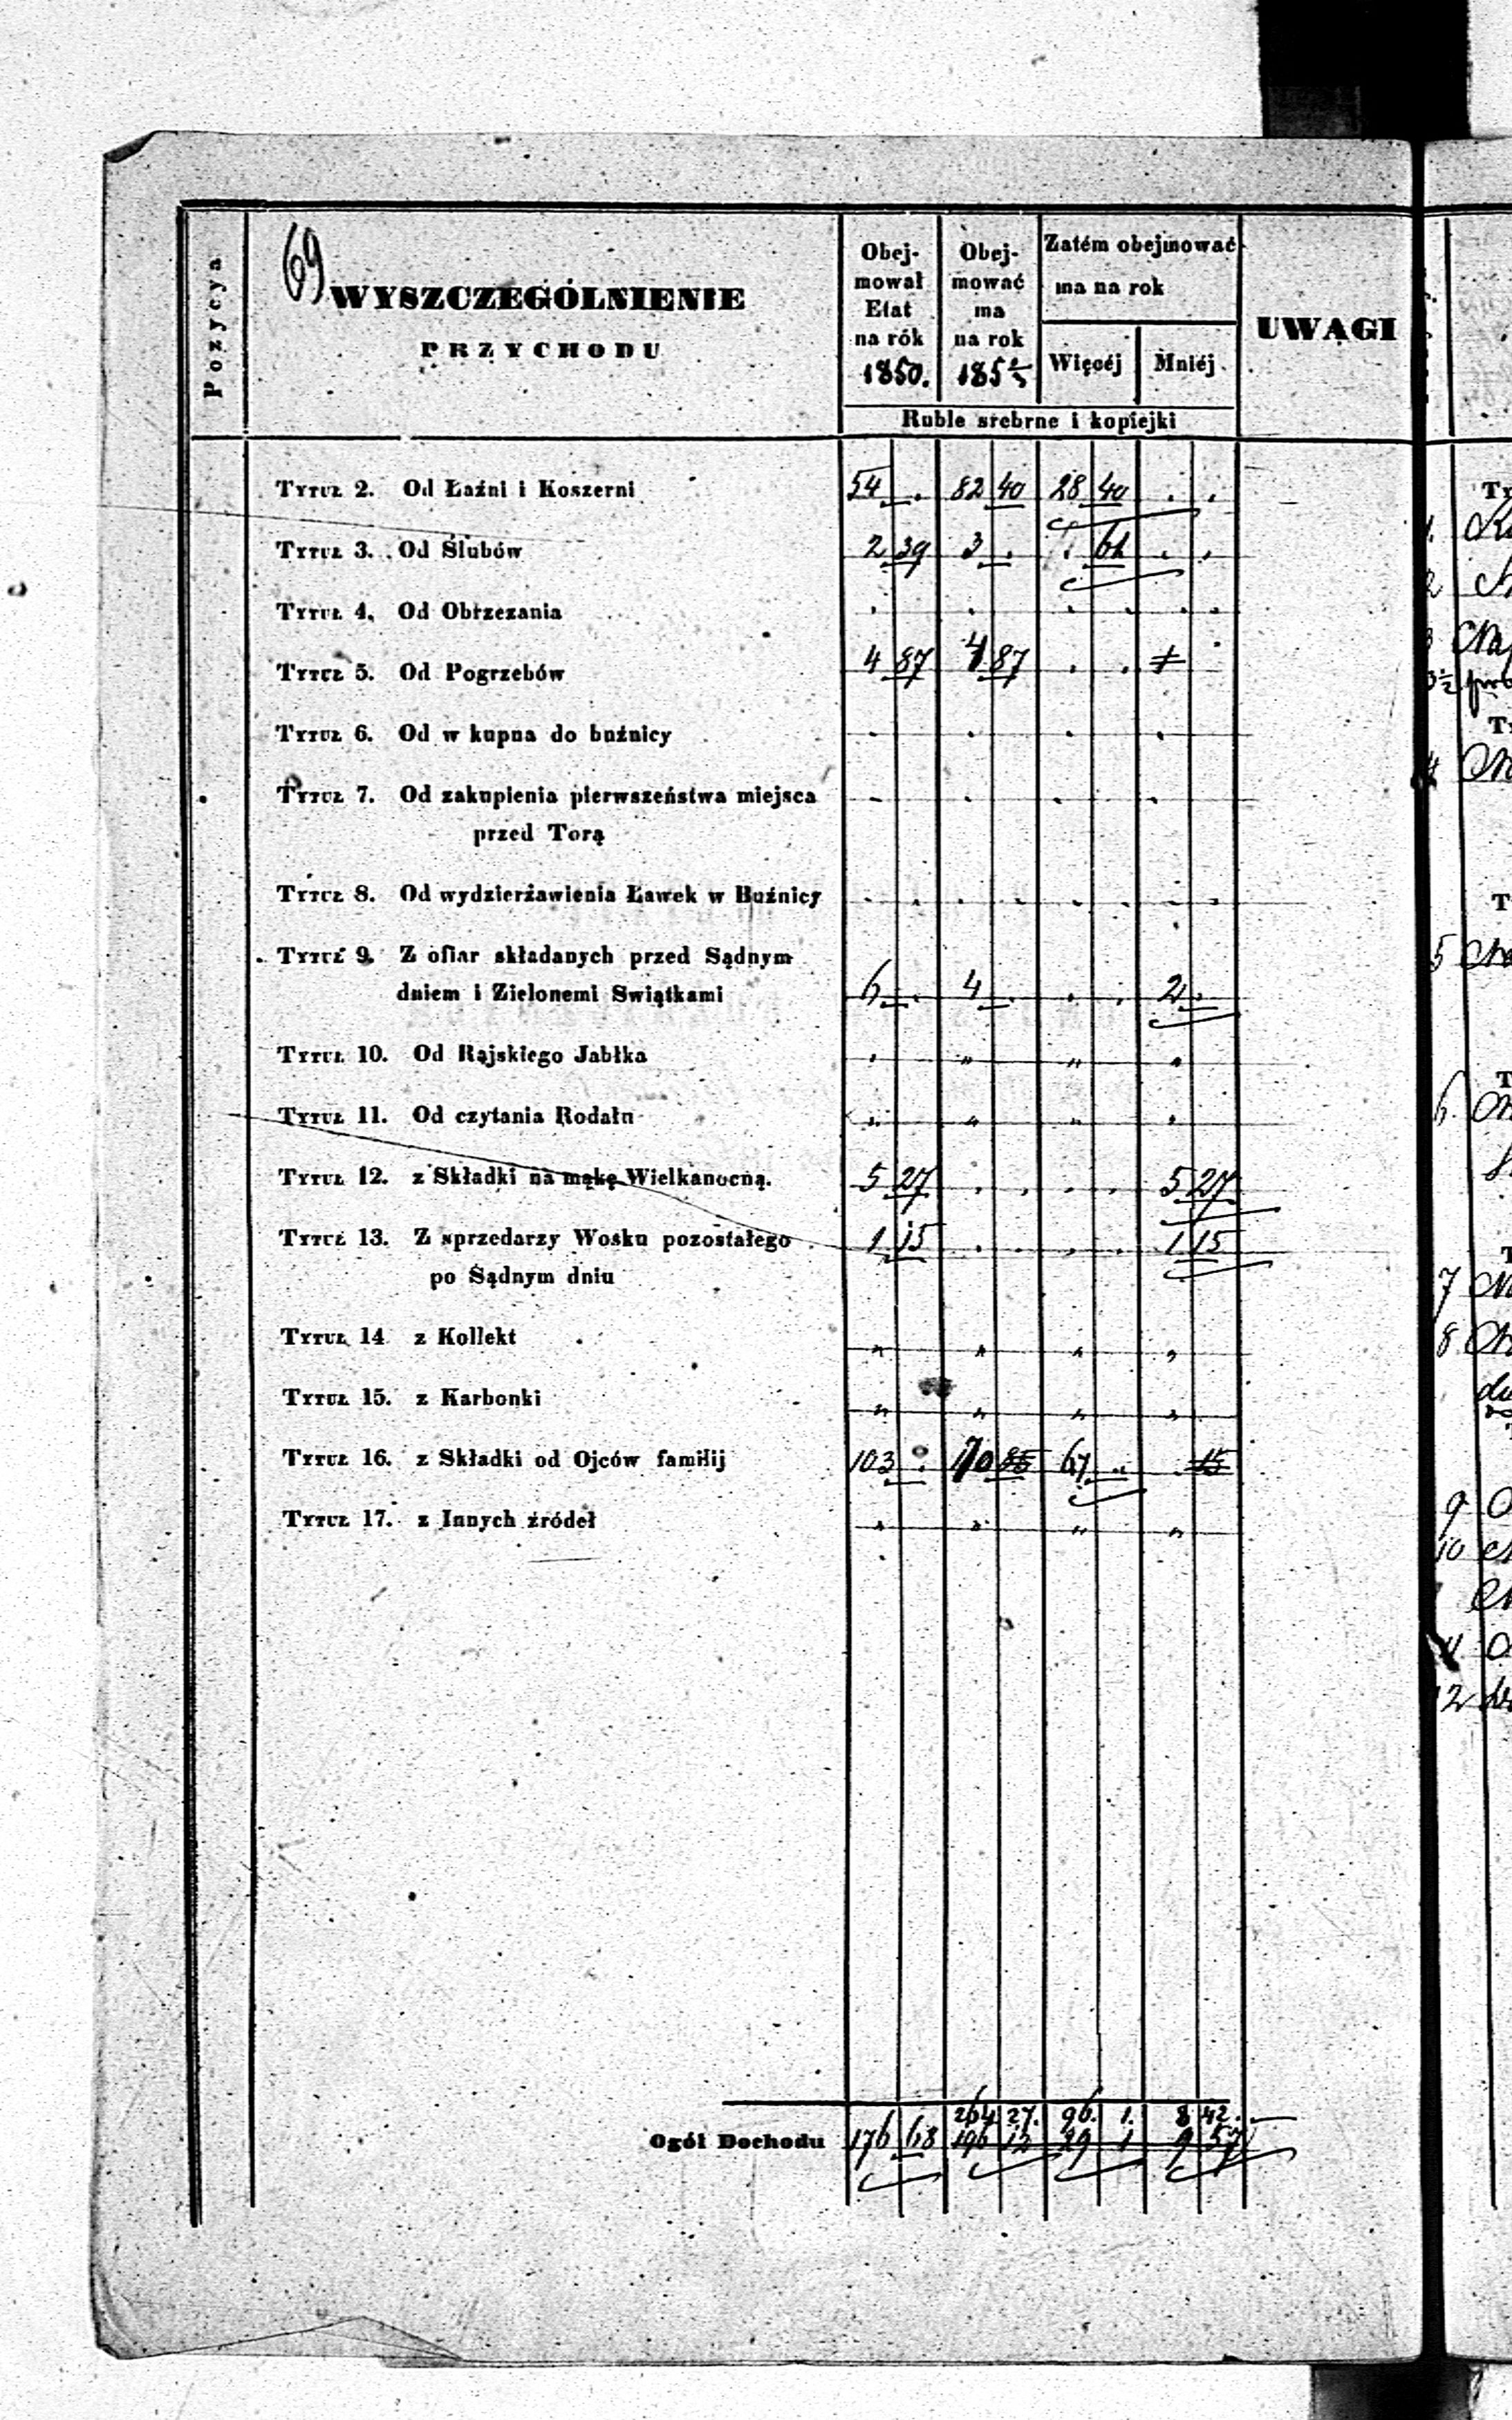 69
WYSZCZEGÓLNIENIE
PRZYCHODU
Pozycya
Obej-
mował
Etat
na rók
1850.
Obej-
mować
ma
na rok
Zatém obejmować
ma na rok
Więcéj
Mniéj
Ruble srebrne i kopiejki
UWAGI
Tytuł 2. Od Łaźni i Koszerni 54 . 82 40 28 40 . .
Tytuł 3. Od Ślubów 2 39 3 . . 61 . .
Tytuł 4. Od Obrzezania
Tytuł 5. Od Pogrzebów 4 87 4 87 . .
Tytuł 6. Od w kupna do buźnicy
Tytuł 7. Od zakupienia pierwszeństwa miejsca
przed Torą
Tytuł 8. Od wydzierżawienia Ławek w Buźnicy
Tytuł 9. Z ofiar składanych przed Sądnym
dniem i Zielonemi Swiątkami 6 . 4 . . . 2 .
Tytuł 10. Od Rajskiego Jabłka
Tytuł 11. Od czytania Rodału
Tytuł 12. z Składki na mąkę Wielkanocną. 5 27 . . . . 5 27
Tytuł 13. Z sprzedarzy Wosku pozostałego 1 15 . . . . 1 15
po Sądnym dniu
Tytuł 14 z Kollekt
Tytuł 15. z Karbonki
Tytuł 16. z Składki od Ojców familij 103 . 85 67 . 15
Tytuł 17. z Innych źródeł
264 27. 96. 1. 8 42.
Ogół Dochodu 176 68 196 12 29 1 9 57